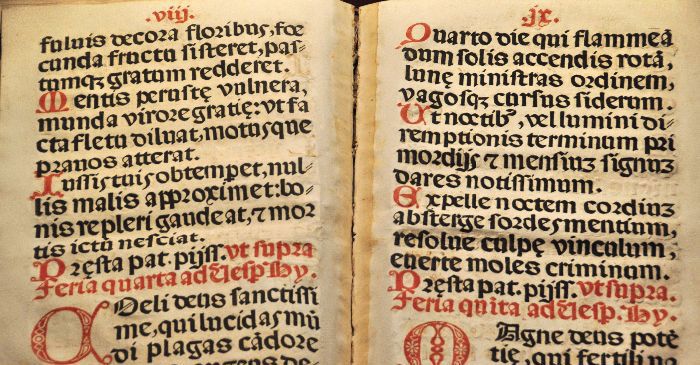 .viij.
fuluis decora floribus, foe
cunda fructu sisteret, pas-
tumqȝ gratum redderet.
Mentis perustę vulnera,
munda virore gratię: vt fa
cta fletu diluat, motusque
prauos atterat.
Iussis tuis obtempet, nul-
lis malis approximet: bo-
nis repleri gaudeat, ⁊ mor
tis ictū nesciat.
Pręsta pat. pijss. vt supra
Feria quarta ad vēsp̄. Hy.
Coeli deus sanctissi
me, qui lucidas mū
di plagas cādore
.ix.
Quarto die qui flammeā
dum solis accendis rotā,
lunę ministras ordinem,
vagosqȝ cursus siderum.
Ut noctibꝰ, vel lumini di-
remptionis terminum pri
mordijs ⁊ mensiuȝ signuȝ
dares notissimum.
Expelle noctem cordiuȝ
absterge sordes mentium,
resolue culpę vinculum,
euerte moles criminum.
Pręsta pat. pijss. vt supra.
Feria quīta ad vēsp̄. Hy.
Magne deus potē
tię, qui fertili na